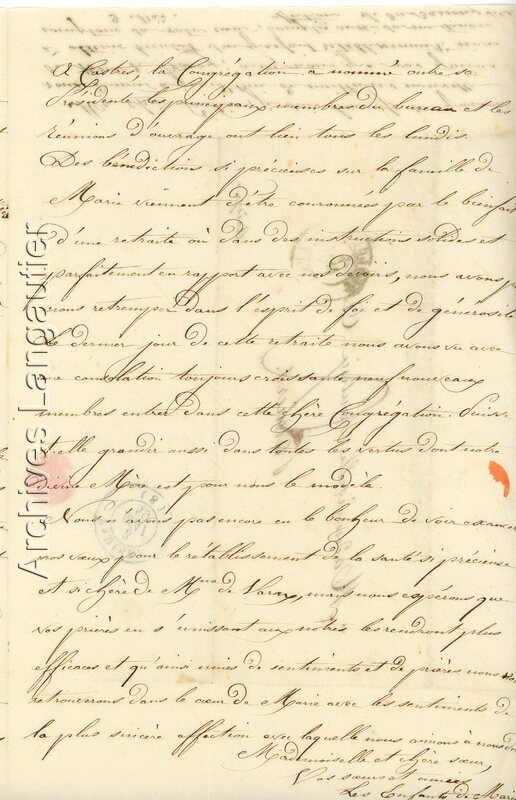 A Castres, la Congrégation a nommé outre sa
Présidente les principaux membres du bureau et les
réunions d'ouvrage ont lieu tous les lundis.
Des bénédictions si précieuses sur la famille de
Marie viennent d'être couronnées par le bienfait
d'une retraite où dans des instructions solides et
parfaitement en rapport avec nos devoirs, nous avons pu
nous retremper dans l'esprit de foi et de générosité
le dernier jour de cette retraite nous avons vu avec
une consolation toujours croissante neuf nouveaux
membres entrer dans cette chère Congrégation. Puisse
t-elle grandir aussi dans toutes les vertus dont notre
divine Mère est pour nous le modèle.
Nous n'avons pas encore eu le bonheur de voir exaucer
nos vœux pour le rétablissement de la santé si précieuse
et si chère de Mme de Varax, mais nous espérons que
vos prières en s'unissant aux nôtres les rendront plus
efficaces et qu'ainsi unies de sentiments et de prières nous nous
retrouverons dans le cœur de Marie avec les sentiments de
la plus sincère affection avec laquelle nous aimons à nous dire
Mademoiselle et chère sœur,
Vos sœurs et amies
Les Enfants de Marie
Archives Langautier